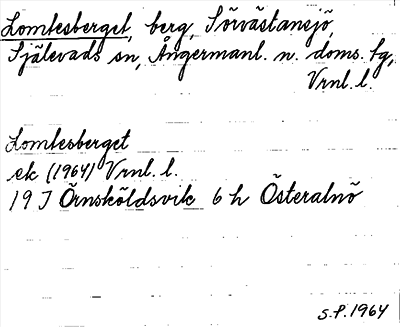 Lomtesberget, berg, Sörvästansjö,
Själevads sn, Ångermanl. n. doms. tg,
Vrnl. l.
Lomtesberget
ek (1964) Vrnl. l.
19 J Örnsköldsvik 6 h Österalnö
S.P. 1964